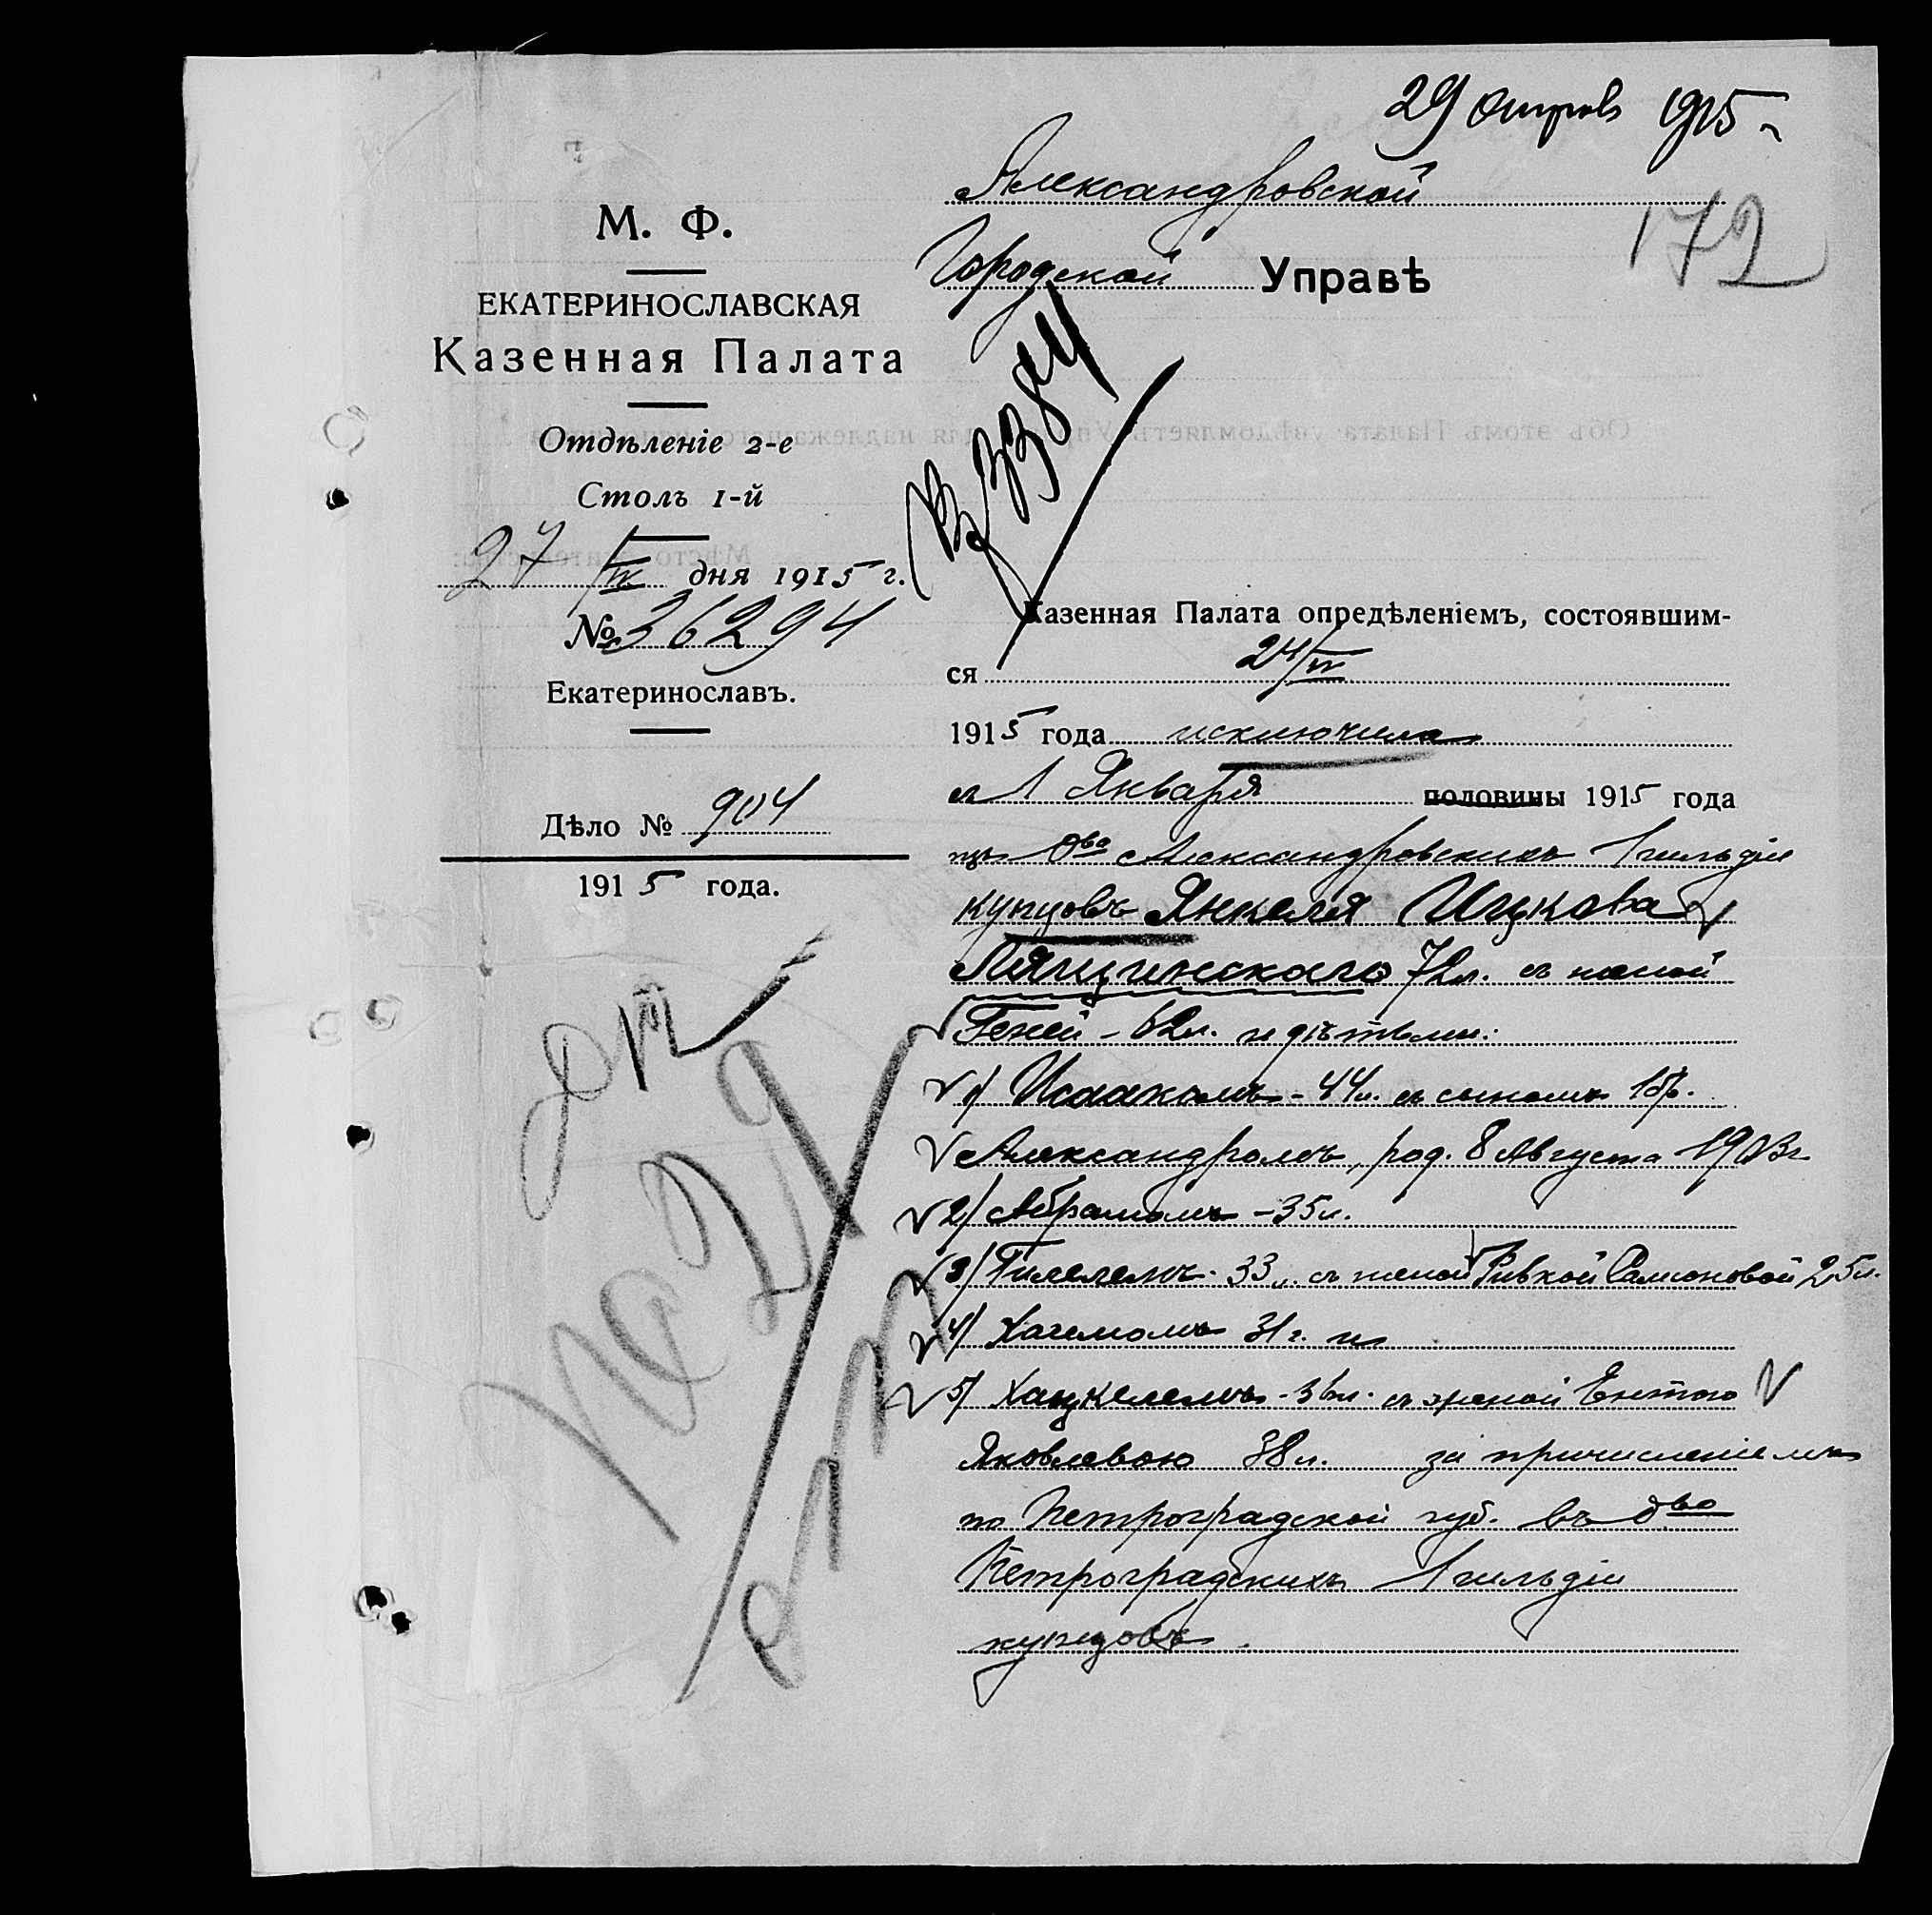 29 апрѣль 1915 г.
172
М. Ф.
ЕКАТЕРИНОСЛАВСКАЯ
Казенная Палата
Отдѣленіе 2-е
Столъ 1-й
27/IV дня 1915 г.
№ 36294
Екатеринославъ.
Дѣло № 904
1915 года.
Александровской
Городской Управѣ
Казенная Палата опредѣленіемъ, состоявшим-
ся 24/IV
1915 года исключила
съ 1 Января половины 1915 года
изъ о-ва Александровскихъ 1 гильдіи
купцовъ Янкеля Ицкова
Лящинскаго 72 л. съ женой
Геней - 62 л. и дѣтьми:
1/ Исаакомъ - 44 л. съ сыномъ
Александромъ, род. 8 Августа 1903 г.
2/ Абрамомъ - 35 л.
3/ Гилелемъ - 33 л. съ женой Ривкой Самсоновой 25 л.
4/ 31 г. и
5/ Хацкелемъ - 36 л. съ женой Ентою
Яковлевою 38 л. за причисленіемъ
по Петроградской губ. въ о-во
Петроградскихъ 1 гильдіи
купцовъ.